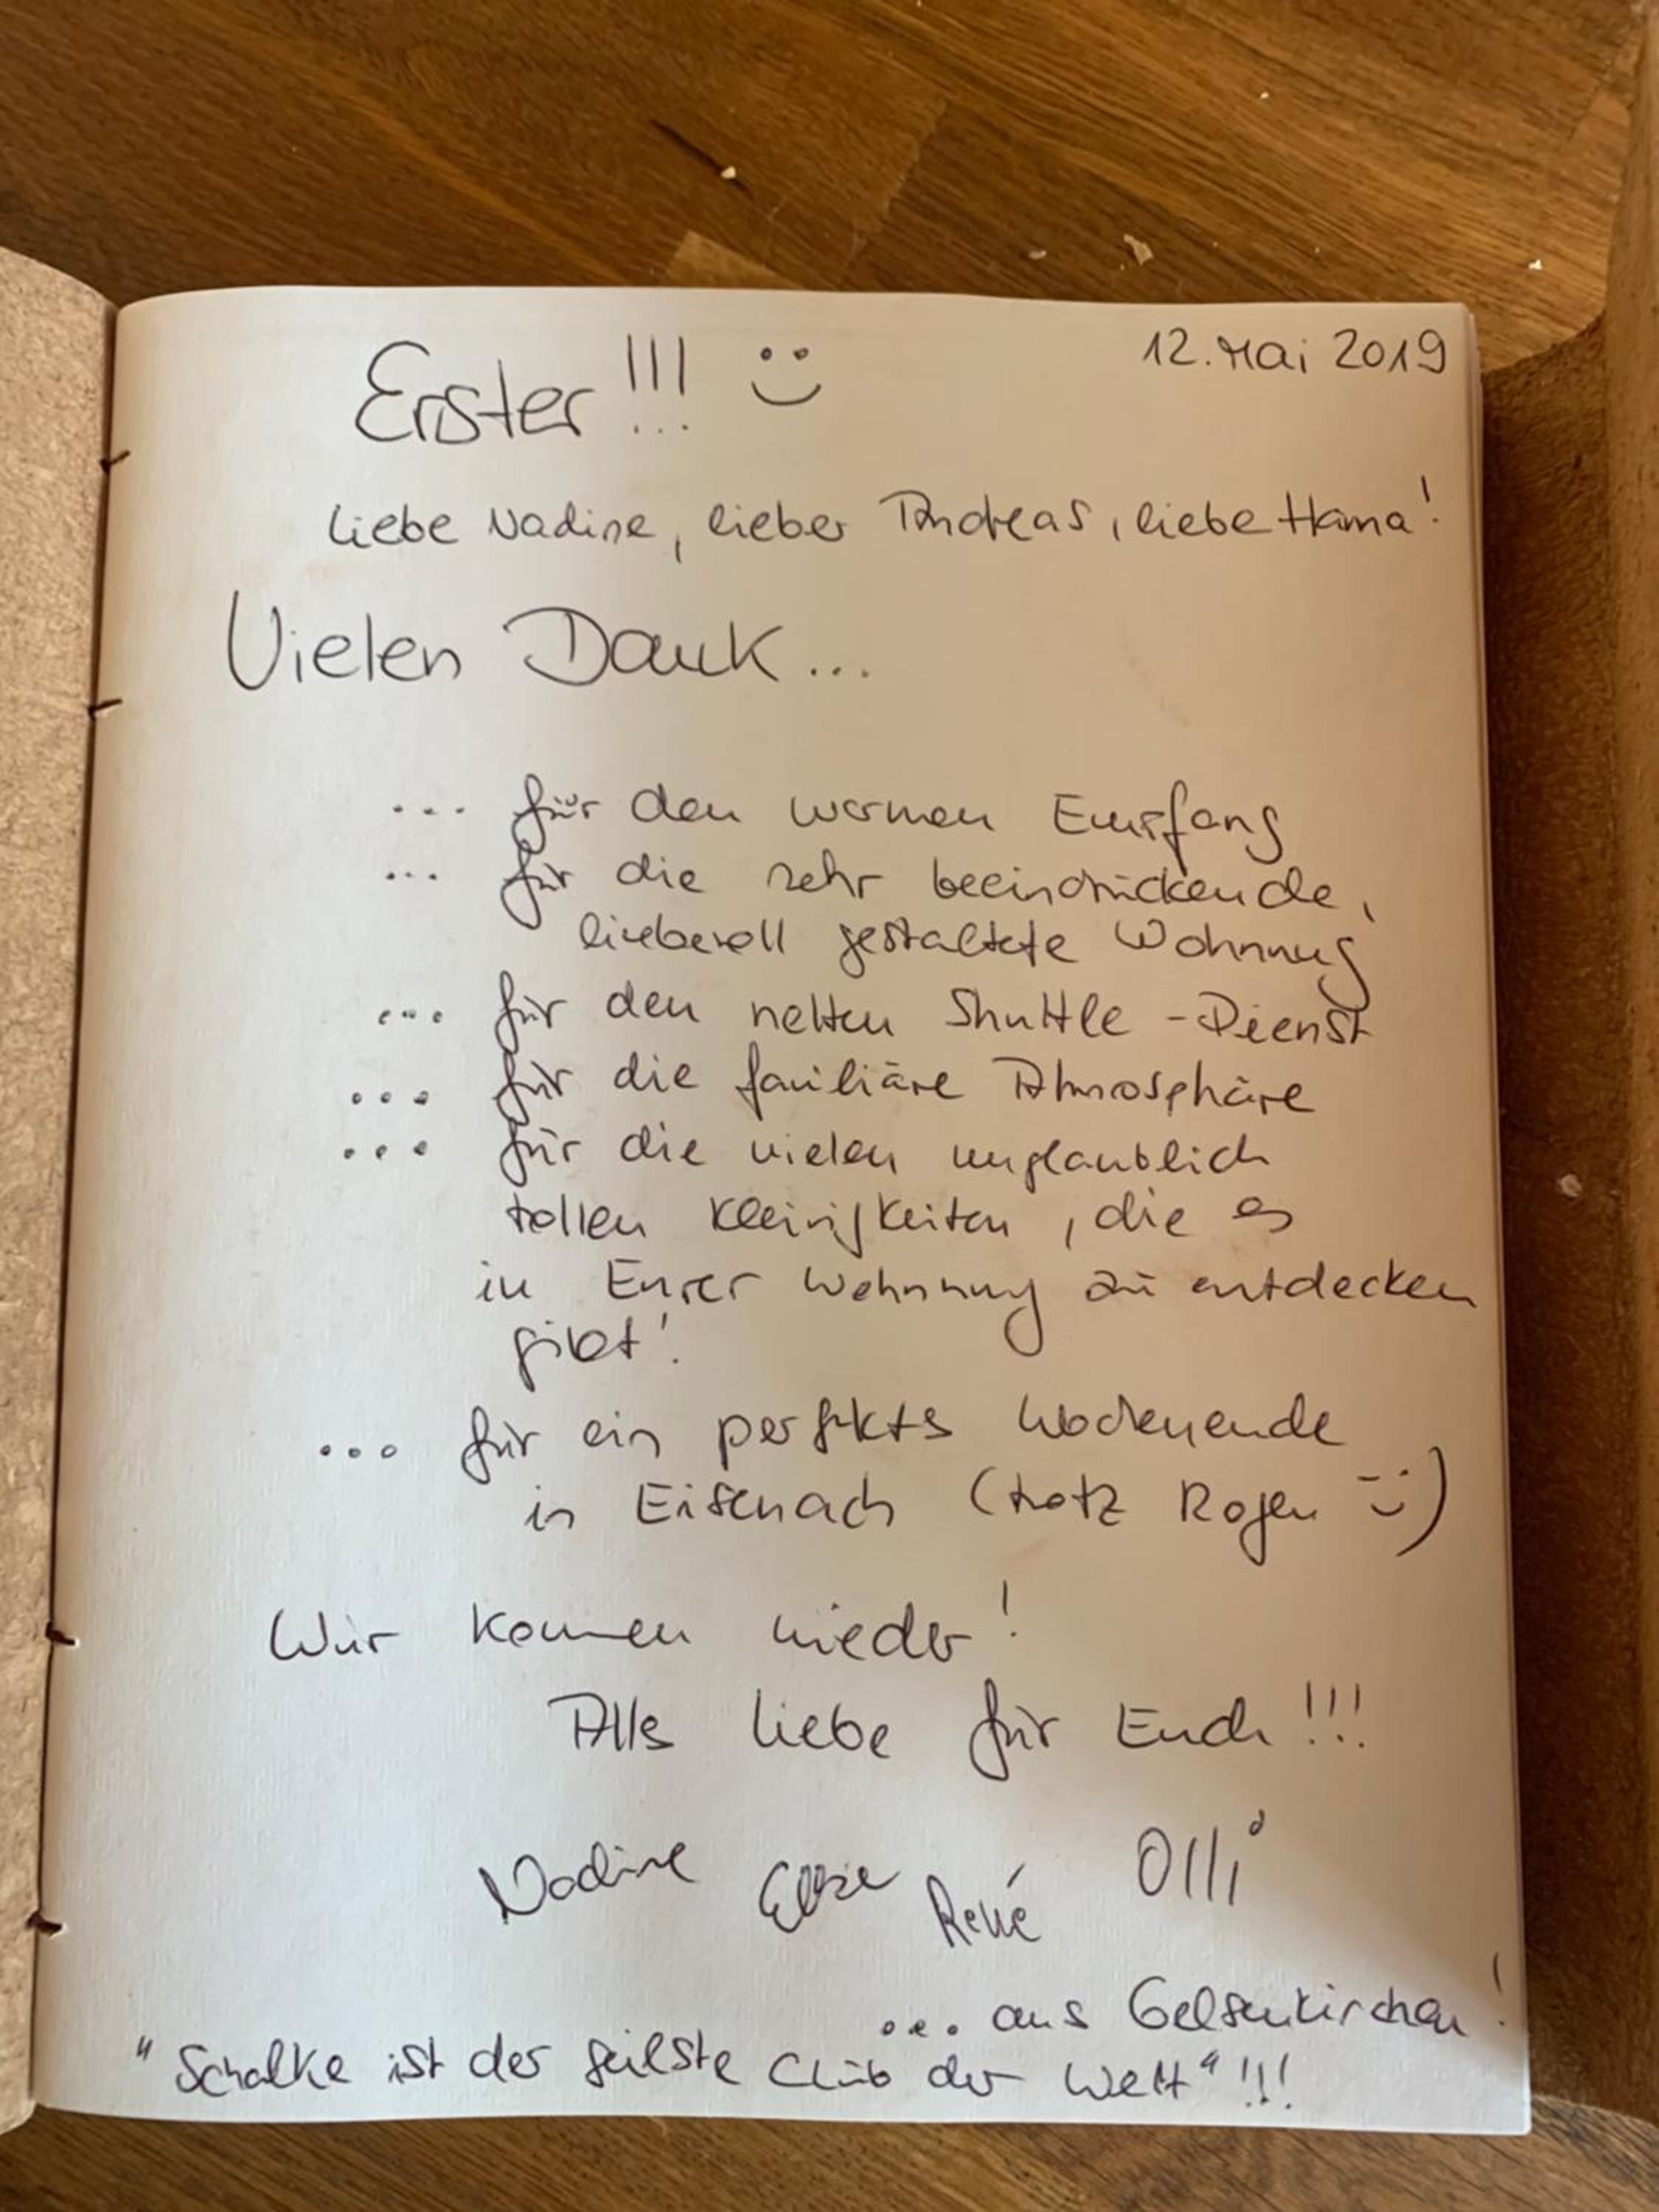 12. Mai 2019
Erster!!! :)
Liebe Nadine, lieber Andreas, liebe Hama!
Vielen Dank...
... für den warmen Empfang
... für die sehr beeindruckende,
liebevoll gestaltete Wohnung
... für den netten Shuttle-Dienst
... für die familiäre Atmosphäre
... für die vielen unglaublich
tollen Kleinigkeiten, die es
in Eurer Wohnung zu entdecken
gibt!
... für ein perfektes Wochenende
in Eisenach (trotz Regen :))
Wir kommen wieder!
Alles Liebe für Euch!!!
Nadine René Olli
... aus Gelsenkirchen!
"Schalke ist der geilste Club der Welt"!!!